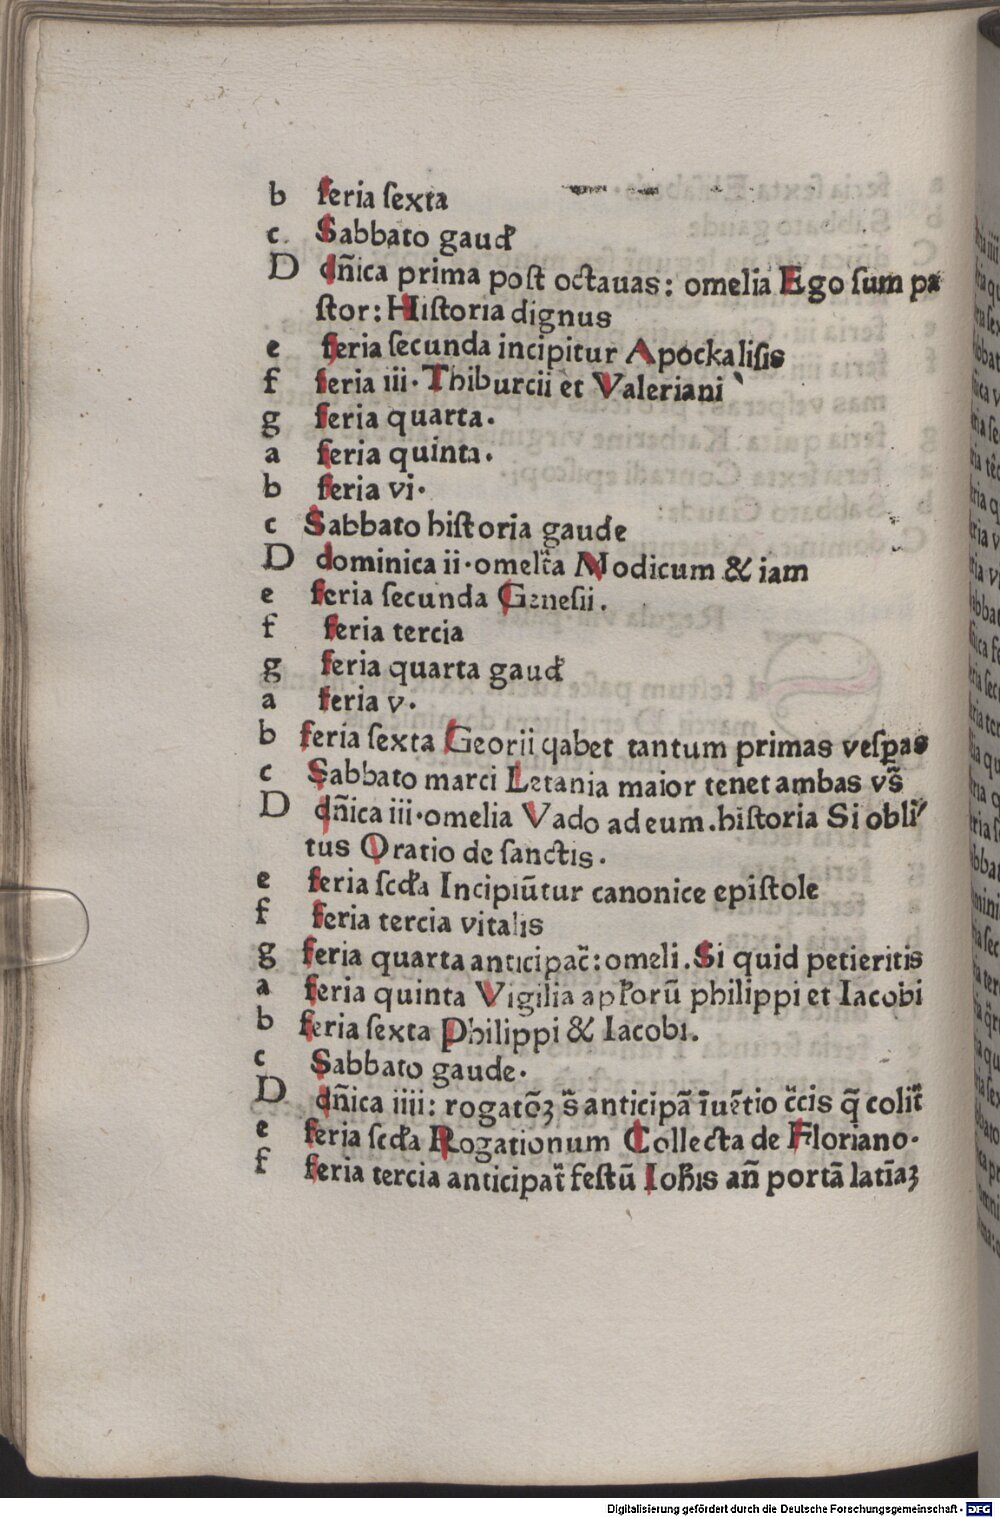 b feria ſexta
c. Sabbato gaud᷒
D dn̄ica prima poſt octauas: omelia Ego ſum pa
ſtor: Hiſtoria dignus
e feria ſecunda incipitur Apockaliſis
f feria iii. Thiburcii et Valeriani
g feria quarta.
a feria quinta.
b feria vi.
c Sabbato hiſtoria gaude
D dominica ii. omelīa Modicum & iam
e feria ſecunda Geneſii.
f feria tercia
g feria quarta gaud᷒
a feria v.
b feria ſexta Georii qabet tantum primas veſpas
c Sabbato marci Letania maior tenet ambas vs̄
D dn̄ica iii. omelia Vado ad eum. hiſtoria Si obli
tus Oratio de ſanctis.
e feria ſcd̄a Incipiūtur canonice epiſtole
f feria tercia vitalis
g feria quarta anticipac̄: omeli. Si quid petieritis
a feria quinta Vigilia apl̄orū philippi et Iacobi
b feria ſexta Philippi & Iacobi.
c Sabbato gaude.
D dn̄ica iiii: rogatōꝫ s̄ anticipā īuētio c̄cis q̄ colit̄
e feria ſcd̄a Rogationum Collecta de Floriano.
f feria tercia anticipat̄ feſtū Ioh̄is an̄ portā latīaꝫ
Digitalisierung gefördert durch die Deutsche Forschungsgemeinschaft - DFG